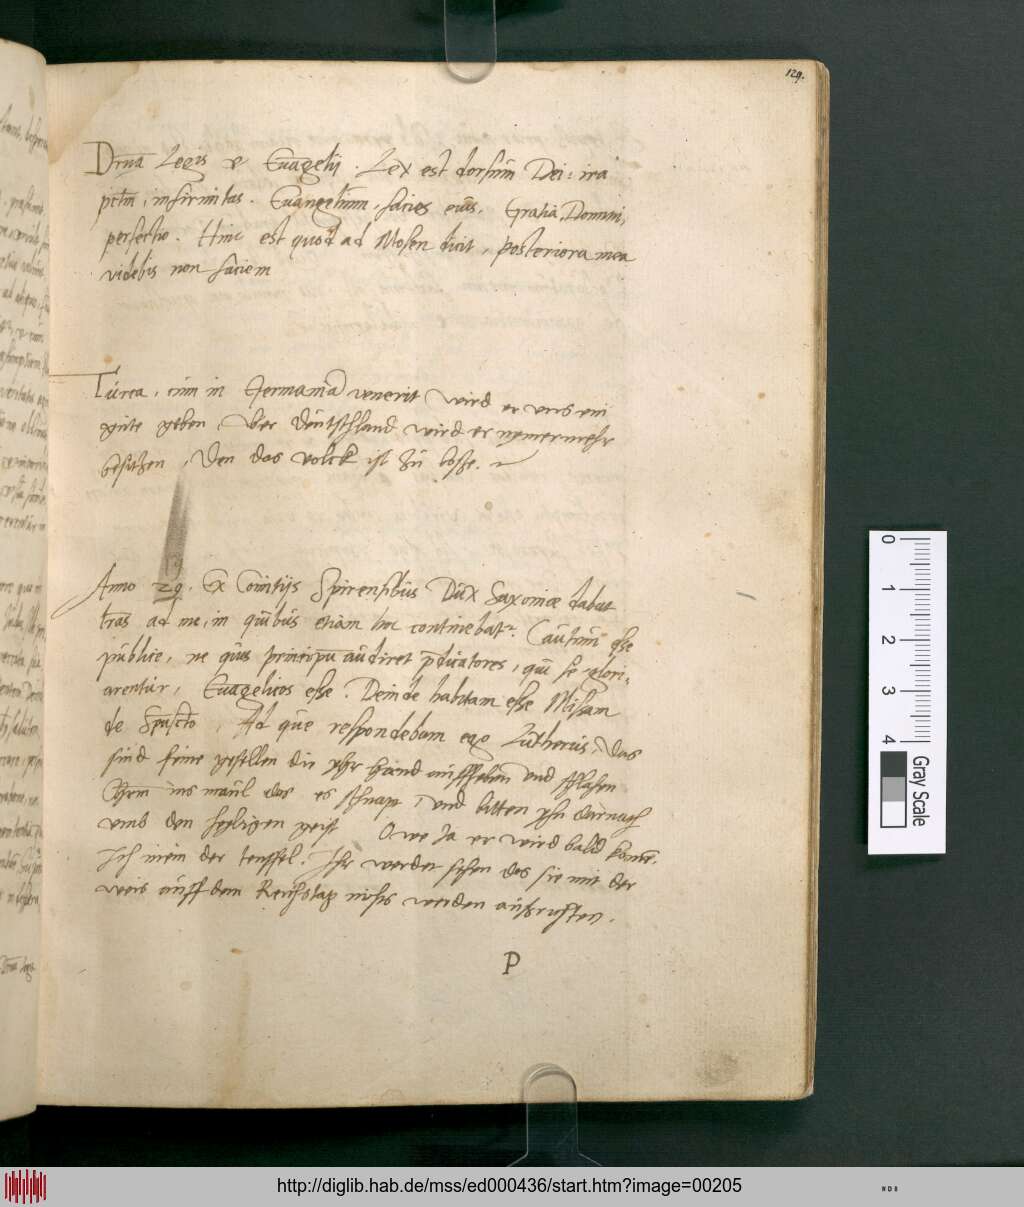 129.
Drna Legis et Euangelij. Lex est dorsum Dei: ira
pctm, infirmitas. Euangelium, facies eius. Gratia, Donum,
perfectio. Hinc est quod ad Mosen dicit, posteriora mea
videbis non faciem
Turca, cum in Germania venerit wird er vns ein
gute geben, Vber deutschland wird er nymermehr
besitzen, Den das volck ist zu boße.
Anno 29. Ex Comitijs Spirensibus Dux Saxoniae dabat
lras ad me, in quibus etiam hoc continebatr. Cautum esse
publice, ne quis principu audiret pdicatores, qui se glori-
arentur, Euagelicos esse. Deinde habitam esse Missam
de Spuscto, Ad que respondebam ego Lutherus, Das
sind feine gesellen die yhr hand auffheben vnd schlahen
Chrm ins maul das es schnapt, vnd bitten yhn darnach
vmb den heyligen geist O we Ja er wird bald komen.
Ich mein der teuffel. Ihr werdet sehen das sie mit der
weis auff dem Reichstag nichts werden außrichten.
P
Drna legis
0
1
2
3
4
Gray Scale
http://diglib.hab.de/mss/ed000436/start.htm?image=00205